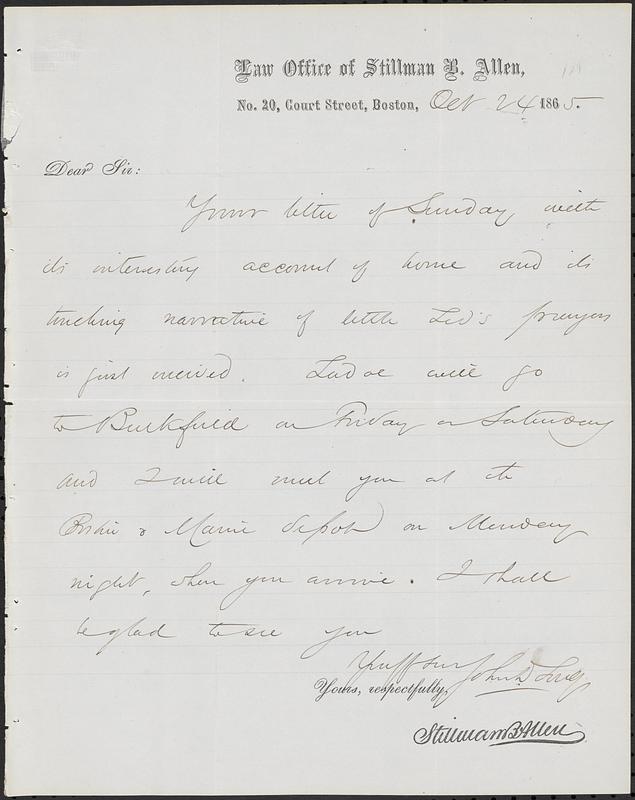 Law Office of Stillman B. Allen,
No. 20, Court Street, Boston, Oct 24 1865.
Dear Sir:
Your letter of Sunday with
its interesting account of home and its
touching narrative of little Zed's prayers
is just received. Zadoc will go
to Buckfield on Friday or Saturday
and I will meet you at the
Boston & Maine depot on Monday
night, when you arrive. I shall
be glad to see you
Yr aff son John D Long
Yours, respectfully,
Stillman B Allen